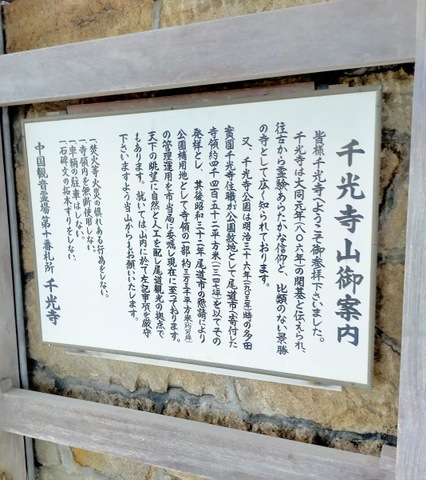 千光寺山御案内
皆様千光寺へようこそ御参拝下さいました。
千光寺は大同元年(八〇六年)の開基と伝えられ、
往古から霊験あらたかな信仰と、比類のない景勝
の寺として広く知られております。
又、千光寺公園は明治三十六年(一九〇三年)時の多田
實圓千光寺住職が公園敷地として尾道市へ寄付した
寺領約四千四百五十二平方米(一三四七坪)を以てその
発祥とし、其後昭和三十二年尾道市の懇請により
公園補用地として寺領の一部約三万三千平方米(約一万坪)
の管理運用を市当局に委嘱し現在に至っております。
天下の眺望に自然と人工を配し尾道観光の拠点で
もあります。就いては山内に於て左記事項を厳守
下さいますよう当山からもお願いいたします。
一、焚火等火気の惧れある行為をしない。
一、寺領内を無断使用しない。
一、車輌の駐車はしない。
一、石碑文の拓本すりをしない。
中国観音霊場第十番札所 千光寺